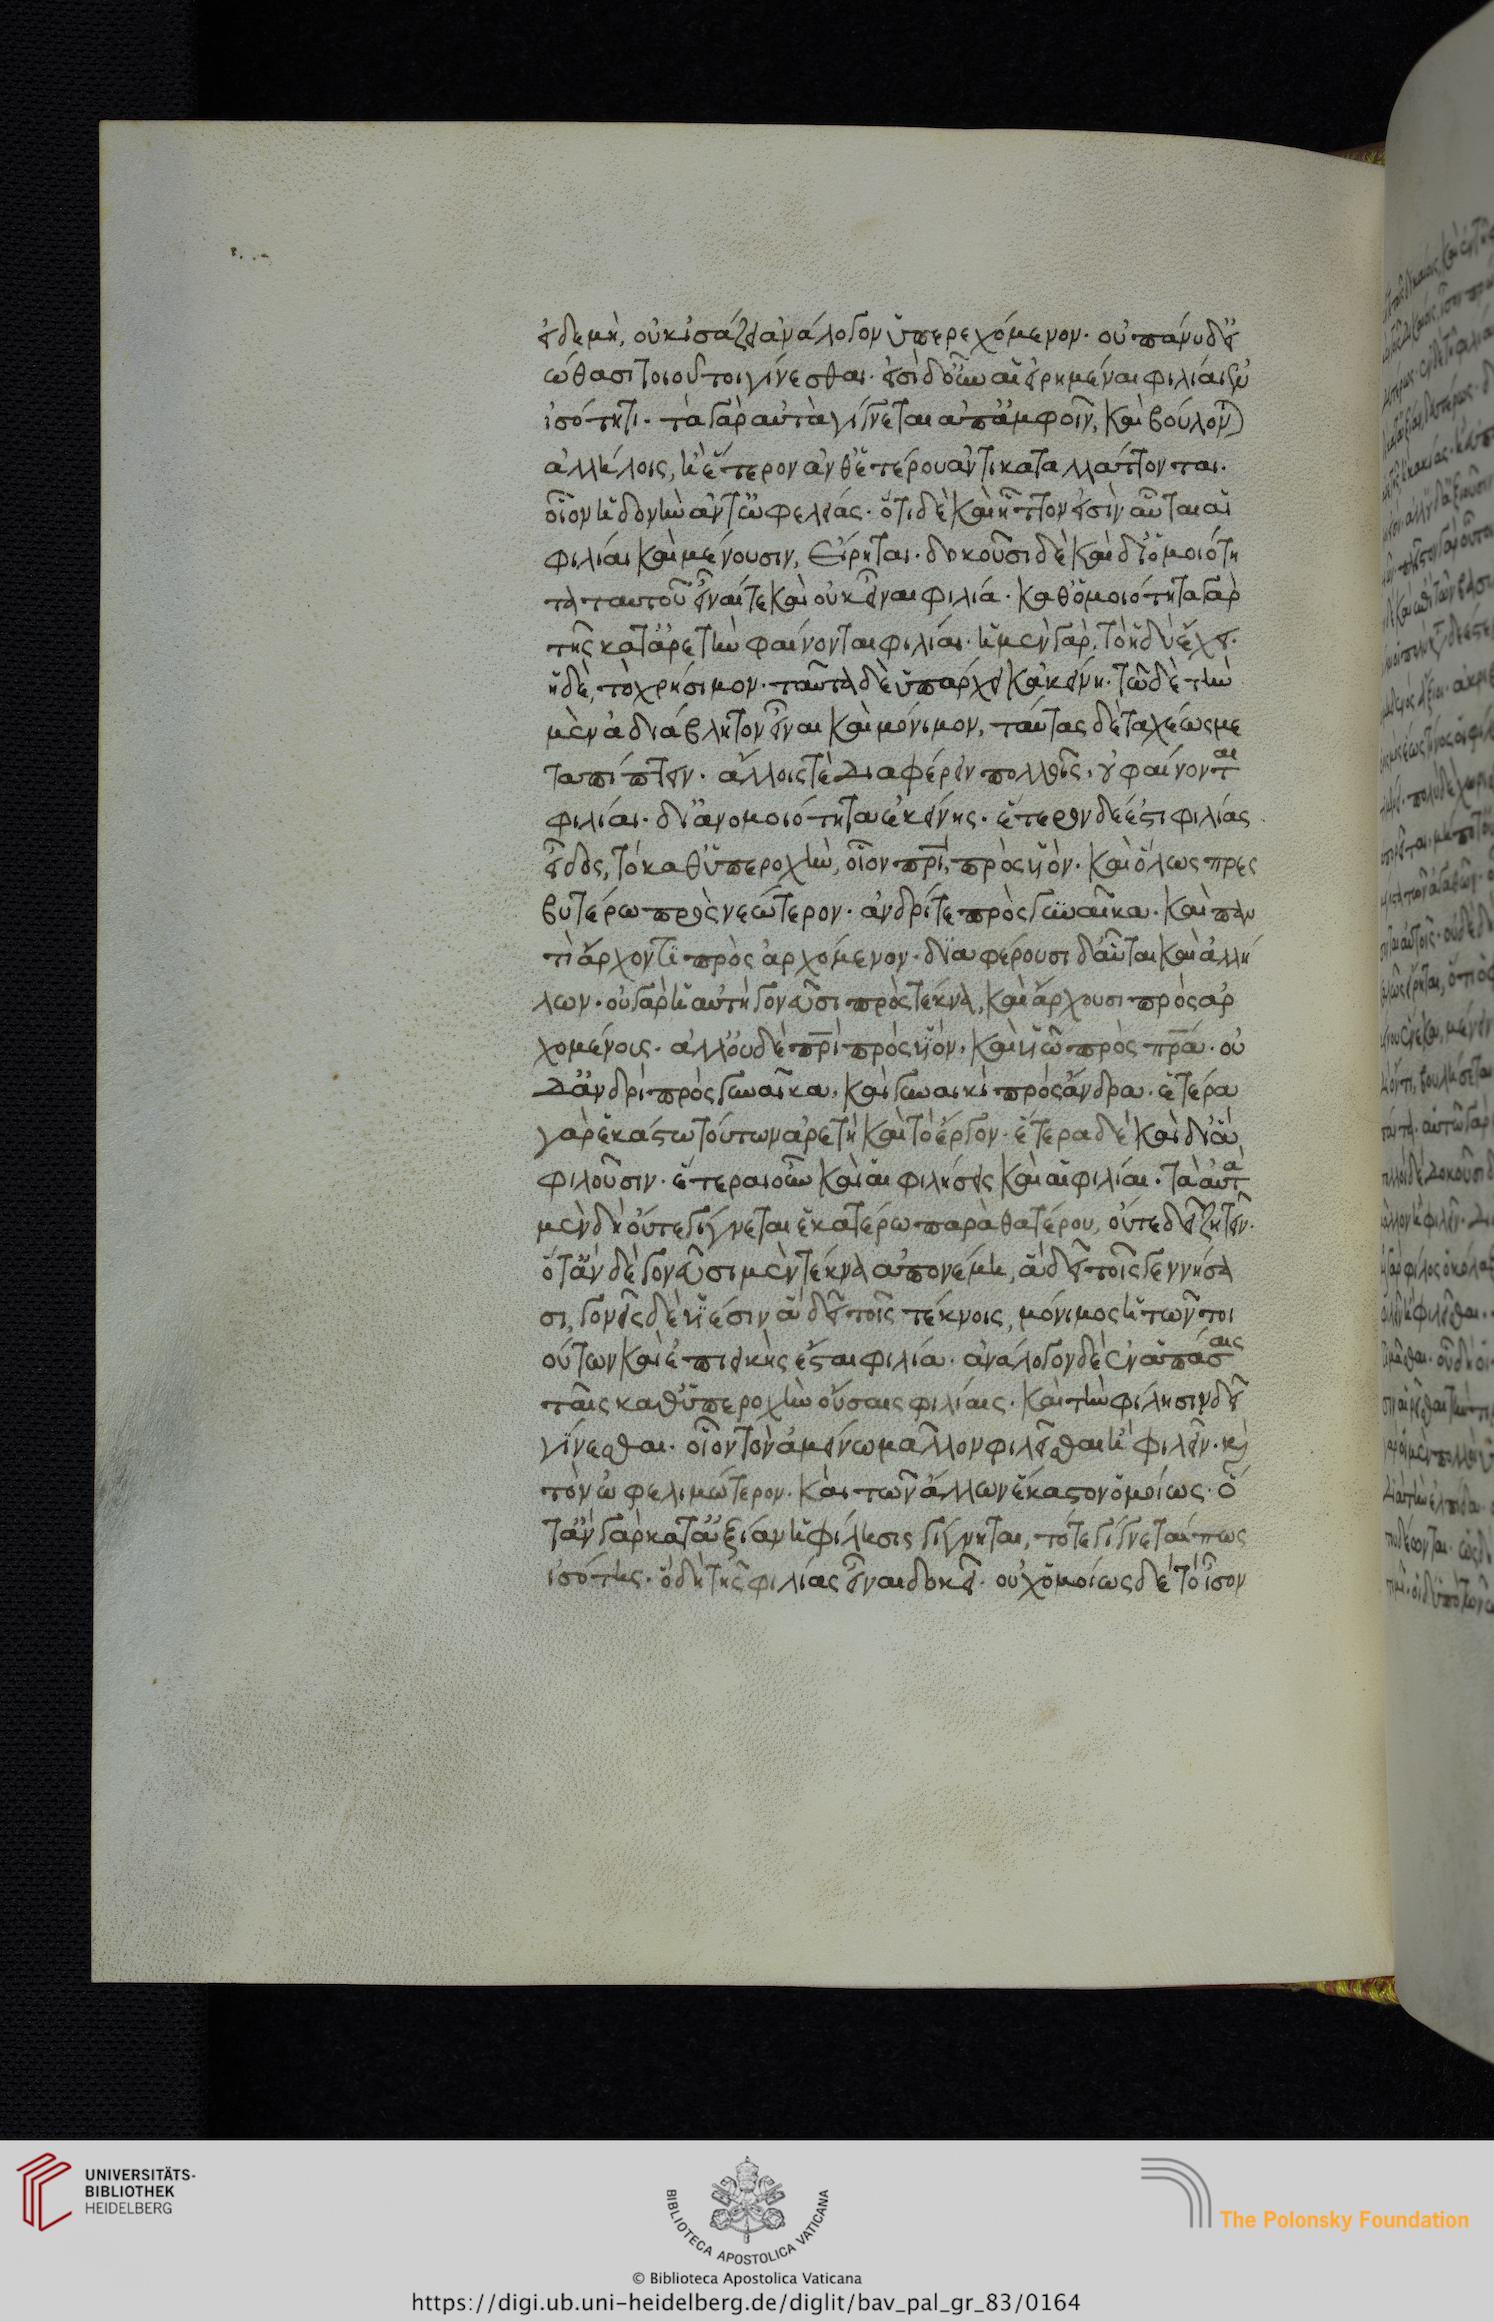 εἰ δὲ μὴ, οὐκ ἰσάζει ἀνάλογον ὑπερεχόμενον. οὐ πάνυ δ' εἰ
ώθασι τοιοῦτοι γίνεσθαι. εἰσὶ δ' οὖν αἱ εἰρημέναι φιλίαι ἐν
ἰσότητι. τὰ γὰρ αὐτὰ γίγνεται ἀπ' ἀμφοῖν, καὶ βούλονται
ἀλλήλοις, ἢ ἕτερον ἀνθ' ἑτέρου ἀντικαταλλάττονται.
οἷον ἡδονὴν ἀντ' ὠφελείας. ὅτι δὲ καὶ ἧττον εἰσὶν αὗται αἱ
φιλίαι καὶ μένουσιν, εἴρηται. δοκοῦσι δὲ καὶ δι' ὁμοιότη
τα ταυτοῦ εἶναί τε καὶ οὐκ εἶναι φιλία. καθ' ὁμοιότητα γὰρ
τῆς κατ' ἀρετὴν φαίνονται φιλίαι. ἡ μὲν γὰρ, τὸ ἡδὺ ἔχει.
ἡ δὲ, τὸ χρήσιμον. ταῦτα δὲ ὑπάρχει κἀκείνῃ. τῶ δὲ τὴν
μὲν ἀδιάβλητον εἶναι καὶ μόνιμον, ταύτας δὲ ταχέως με
ταπίπτειν. ἄλλοις τὲ διαφέρειν πολλοῖς, οὐ φαίνονται
φιλίαι. δι' ἀνομοιότητα ἐκείνης. ἕτερον δέ ἐστι φιλίας
εἶδος, τὸ καθ' ὑπεροχὴν, οἷον πρὶ, πρὸς υἱόν. καὶ ὅλως πρες
βυτέρω πρὸς νεώτερον. ἀνδρί τε πρὸς γυναῖκα. καὶ παν
τὶ ἄρχοντι πρὸς ἀρχόμενον. διαφέρουσι δ' αὗται καὶ ἀλλή
λων. οὐ γὰρ ἡ αὐτὴ γονεῦσι πρὸς τέκνα, καὶ ἄρχουσι πρὸς ἀρ
χομένοις. ἀλλ' οὐδὲ πρὶ πρὸς υἱόν, καὶ υἱῶ πρὸς πρα. οὐ
δ' ἀνδρὶ πρὸς γυναῖκα, καὶ γυναικὶ πρὸς ἄνδρα. ἑτέρα
γὰρ ἑκάστω τούτων ἀρετὴ καὶ τὸ ἔργον. ἕτερα δὲ καὶ δι' ἃ
φιλοῦσιν. ἕτεραι οὖν καὶ αἱ φιλήσεις καὶ αἱ φιλίαι. τὰ αὐτὰ
μὲν δὴ οὔτε γίγνεται ἑκατέρω παρὰ θατέρου, οὔτε δεῖ ζητεῖν.
ὅταν δὲ γονεῦσι μὲν τέκνα ἀπονέμῃ, ἃ δεῖ τοῖς γεννήσα
σι, γονεῖς δὲ υἱέσιν ἃ δεῖ τοῖς τέκνοις, μόνιμος ἡ τῶν τοι
ούτων καὶ ἐπιεικὴς ἔσται φιλία. ἀνάλογον δὲ ἐν ἁπάσαις
ταῖς καθ' ὑπεροχὴν οὔσαις φιλίαις. καὶ τὴν φίλησιν δεῖ
γίνεσθαι. οἷον τὸν ἀμείνω μᾶλλον φιλεῖσθαι ἢ φιλεῖν. καὶ
τὸν ὠφελιμώτερον. καὶ τῶν ἄλλων ἕκαστον ὁμοίως. ὅ
ταν γὰρ κατ' ἀξίαν ἡ φίλησις γίγνηται, τότε γίγνεταί πως
ἰσότης. ὃ δὴ τῆς φιλίας εἶναι δοκεῖ. οὐχ ὁμοίως δὲ τὸ ἴσον
UNIVERSITÄTS-
BIBLIOTHEK
HEIDELBERG
BIBLIOTECA APOSTOLICA VATICANA
The Polonsky Foundation
© Biblioteca Apostolica Vaticana
https://digi.ub.uni-heidelberg.de/diglit/bav_pal_gr_83/0164